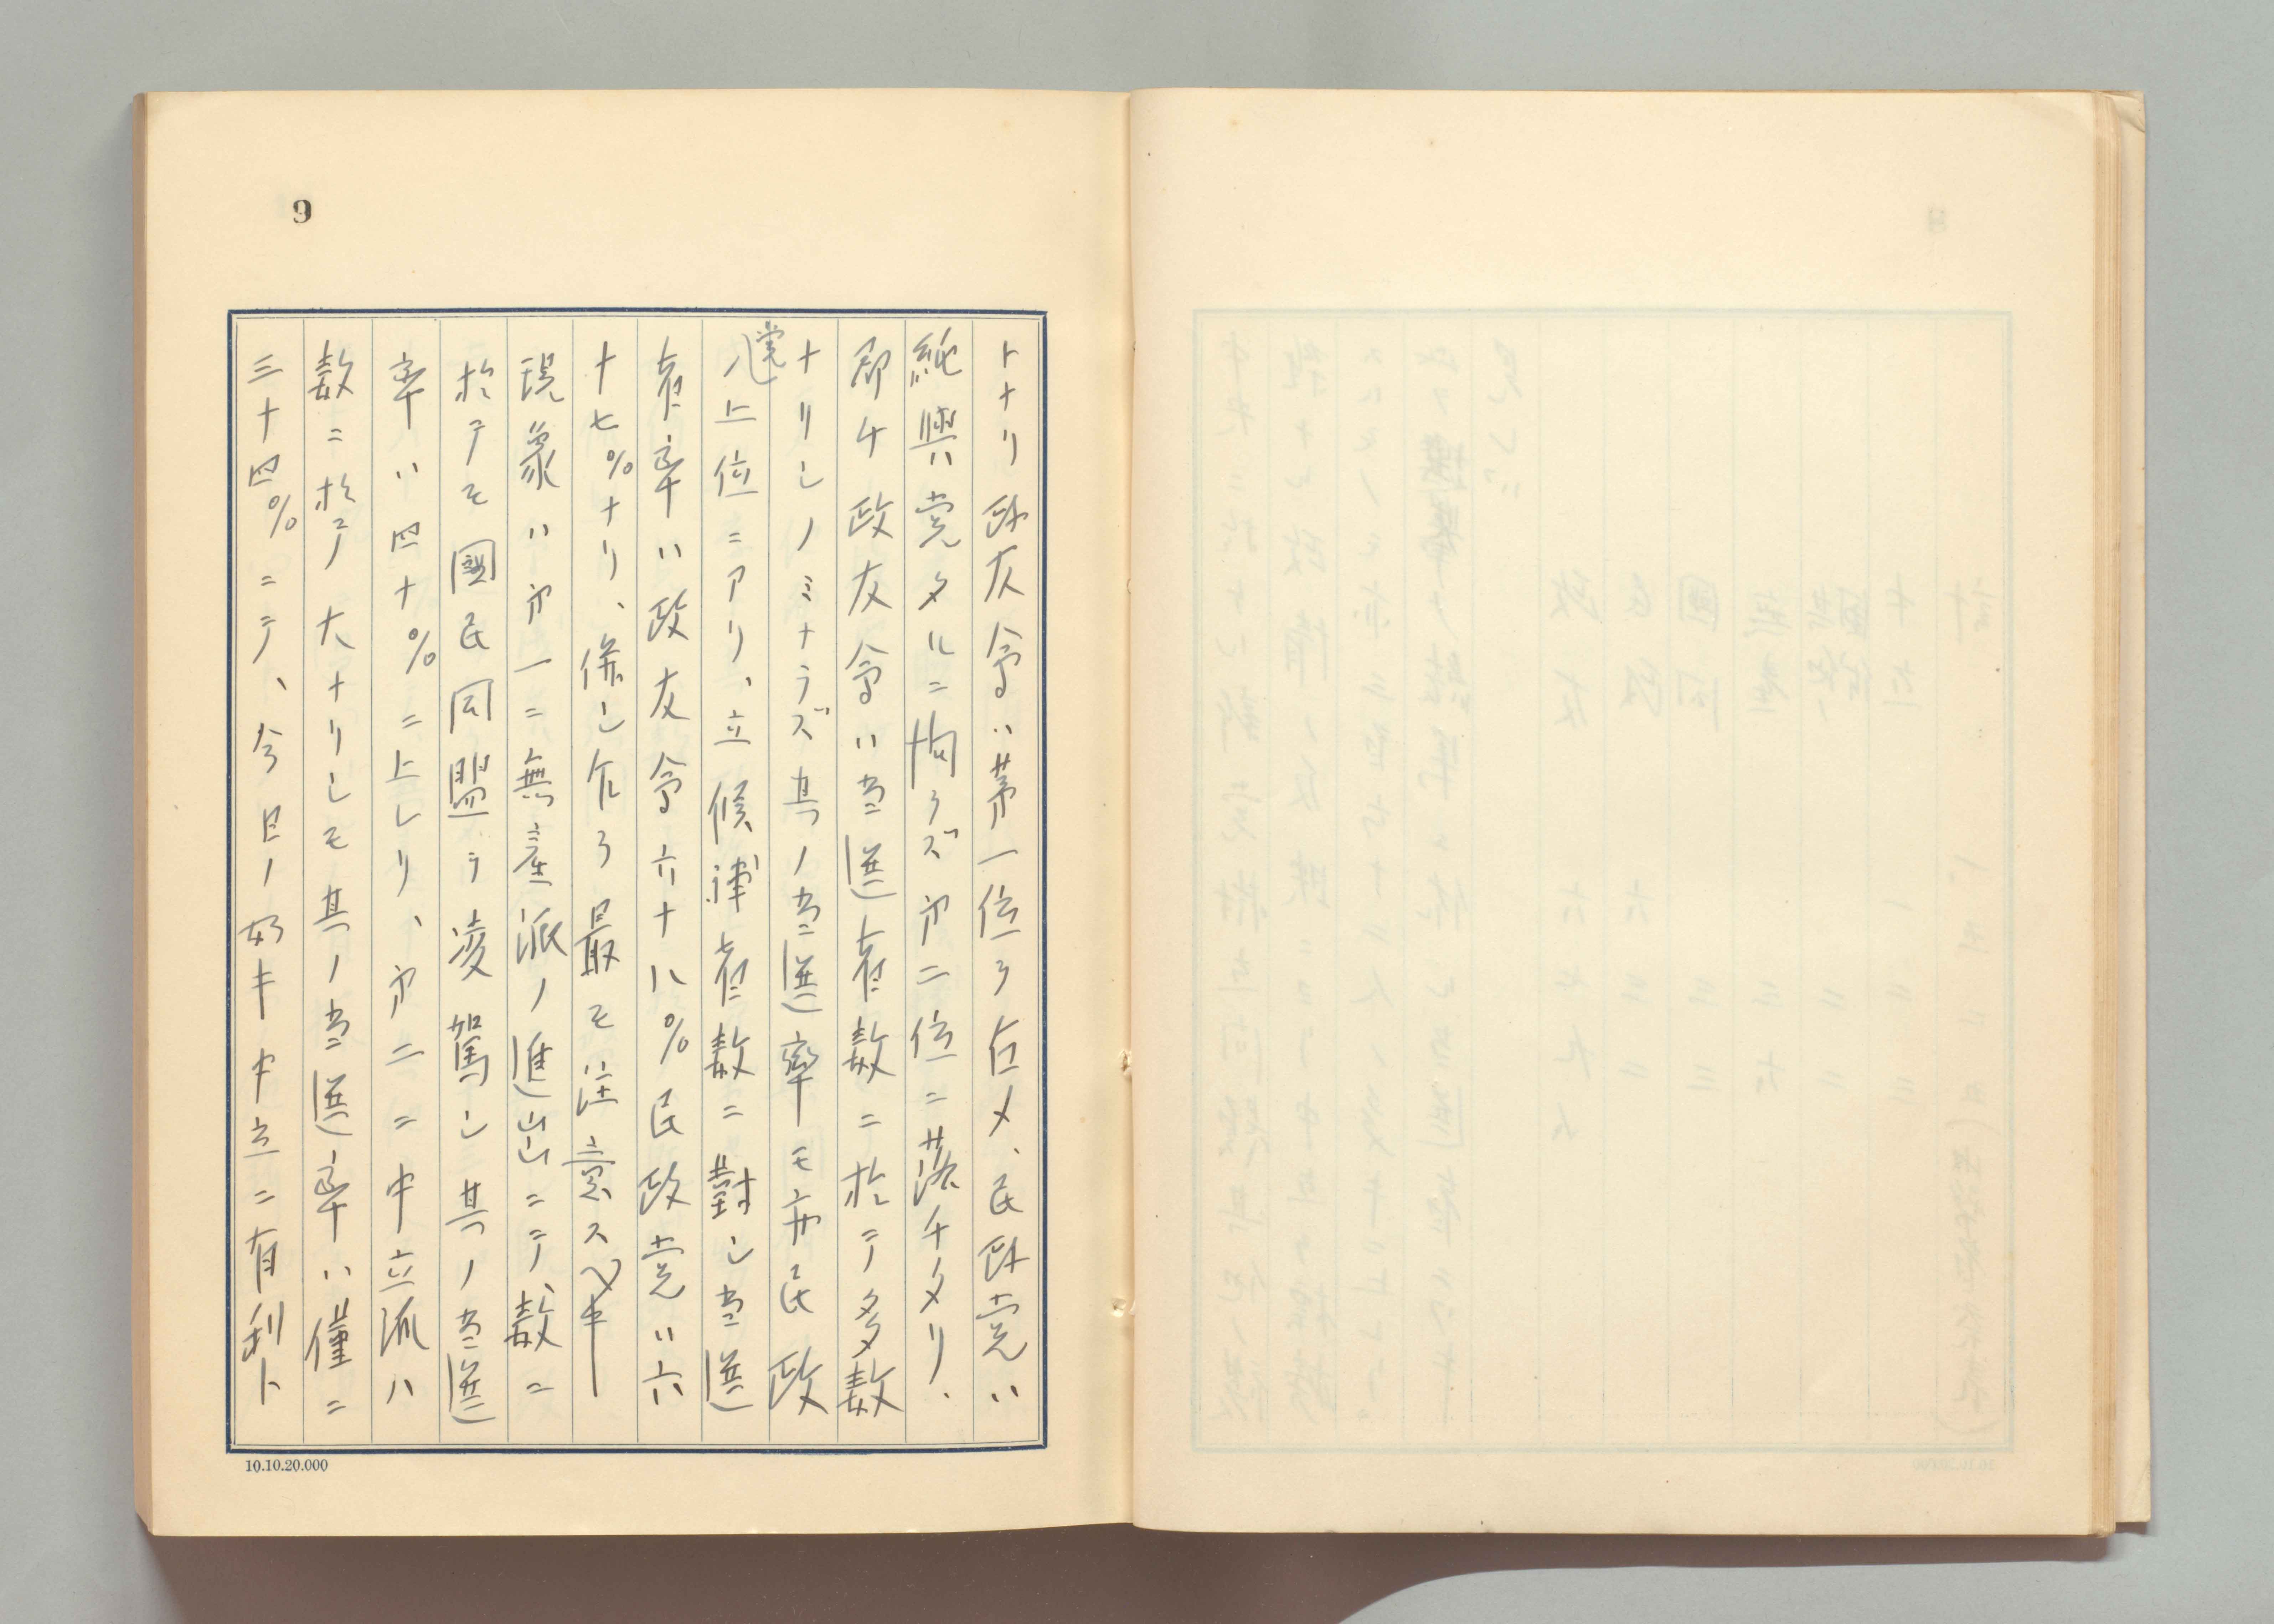 9
トナリ政友会ハ第一位ヲ占メ、民政党ハ
純與党タルニ拘ラズ第二位ニ落チタリ、
即チ政友会ハ当選者数ニ於テ多数
ナリシノミナラズ其ノ当選率モ亦民政
党ノ上位ニアリ、立候補者数ニ對シ当選
者率ハ政友会六十八%民政党ハ六
十七%ナリ、併シ乍ラ最モ注意スベキ
現象ハ第一ニ無産派ノ進出ニテ、数ニ
於テモ國民同盟ヲ凌駕シ其ノ当選
率ハ四十%ニ上レリ、第二ニ中立派ハ
数ニ於テ大ナリシモ其ノ当選率ハ僅ニ
三十四%ニテ、今日ノ如キ中立ニ有利ト
10.10.20.000